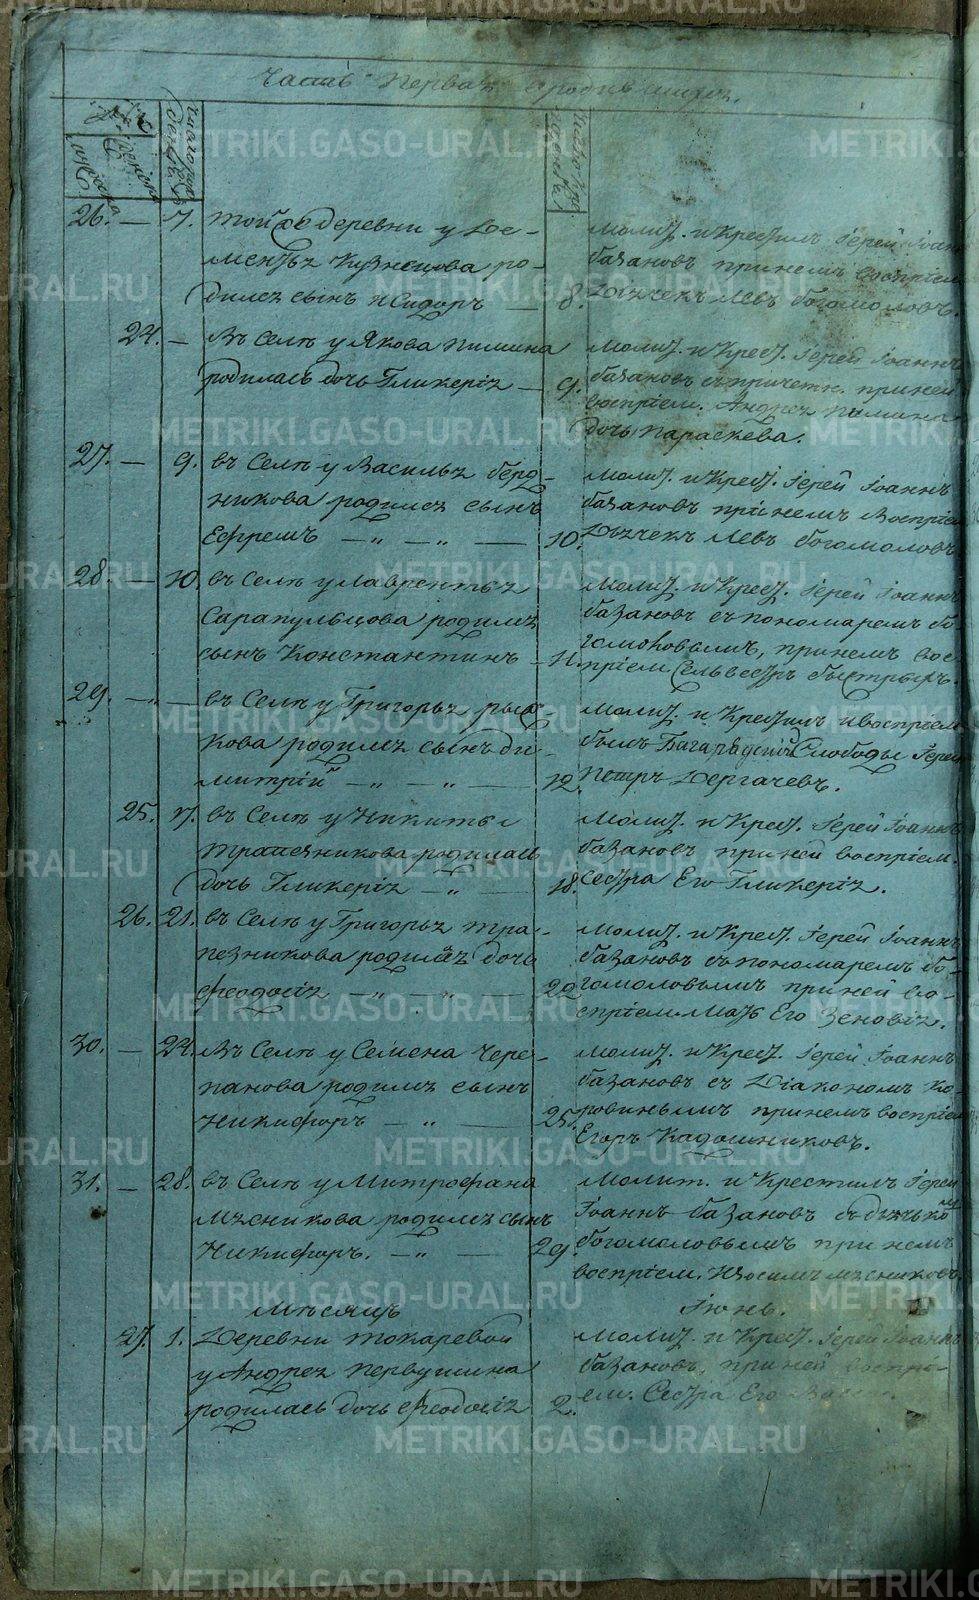 Часть Первая о родившихся.
26. — 7. той же деревни у Де-
ментья Кузнецова ро-
дился сынъ Исидоръ — 8.
молит. и Крестилъ Іерей Іоаннъ
базановъ при немъ воспріем.
Дьячекъ Левъ богомоловъ.
24. — Въ Селѣ у Якова Пимина
родилась дочь Гликерія — 9.
молит. и Крест. Іерей Іоаннъ
базановъ съ причетн. при ней
воспріем. Андрея Пимина
дочь Параскева.
27. — 9. въ Селѣ у Василья берд-
никова родился сынъ
Ефремъ — „ — „ — 10.
молит. и Крест. Іерей Іоаннъ
базановъ при немъ Воспріем
Дьячекъ Левъ богомоловъ
28. — 10. въ Селѣ у Лаврентья
Сарапульцова родился
сынъ Константинъ — 11.
молит. и Крест. Іерей Іоаннъ
базановъ съ пономаремъ бо-
гомоловымъ, при немъ вос-
пріем Сельвестръ быстрыхъ.
29. — „ — въ Селѣ у Григорья рыб-
кова родился сынъ Ди-
митрій — „ — „ — 12.
молит. и Крестилъ и воспріем
былъ Багарядской Слободы Іерей
Петръ Дергачевъ.
25. 17. въ Селѣ у Никиты
трапезникова родилась
дочь Гликерія — „ — 18.
молит. и Крест. Іерей Іоаннъ
базановъ при ней воспріем.
Сестра Его Гликерія.
26. 21. въ Селѣ у Григорья тра-
пезникова родилась дочь
Феодосія — „ — „ — 22.
молит. и Крест. Іерей Іоаннъ
базановъ съ пономаремъ бо-
гомоловымъ при ней во-
спріем. Мать Его Зеновія.
30. — 24. Въ Селѣ у Семена Чере-
панова родился сынъ
Никифоръ — „ — 25.
молит. и Крест. Іерей Іоаннъ
базановъ съ Діакономъ Ко-
ровинымъ при немъ воспріем
Егоръ Кадошниковъ.
31. — 28. въ Селѣ у Митрофана
мясникова родился сынъ
Никифоръ. — „ — 29.
молит. и Крестилъ Іерей
Іоаннъ базановъ съ дьячько
богомоловымъ при немъ
воспріем. Изосимъ мясниковъ.
Мѣсяцъ Іюнь.
27. 1. Деревни токаревой
у Андрея Первушина
родилась дочь Феодосія 2.
молит. и Крест. Іерей Іоаннъ
базановъ, при ней воспрі-
ем. Сестра Его
METRIKI.GASO-URAL.RU